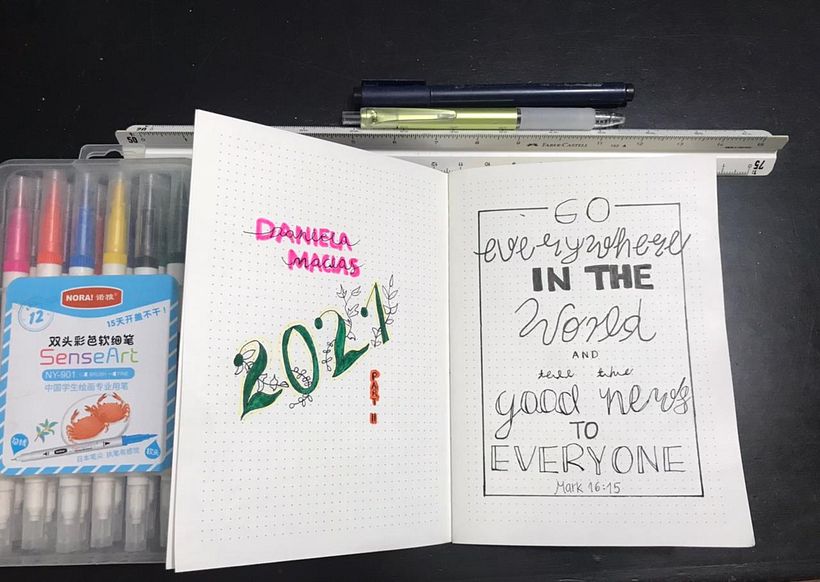 FABER-CASTELL
50
75
NORA! 诺雅
12
15天开盖不干!
双头彩色软细笔
SenseArt
NY-901
中国学生绘画专业用笔
日本笔尖
软头
DANIELA
daniela
MACIAS
macias
2021
PART II
GO
everywhere
IN THE
World
AND
tell the
good news
TO
EVERYONE
Mark 16:15